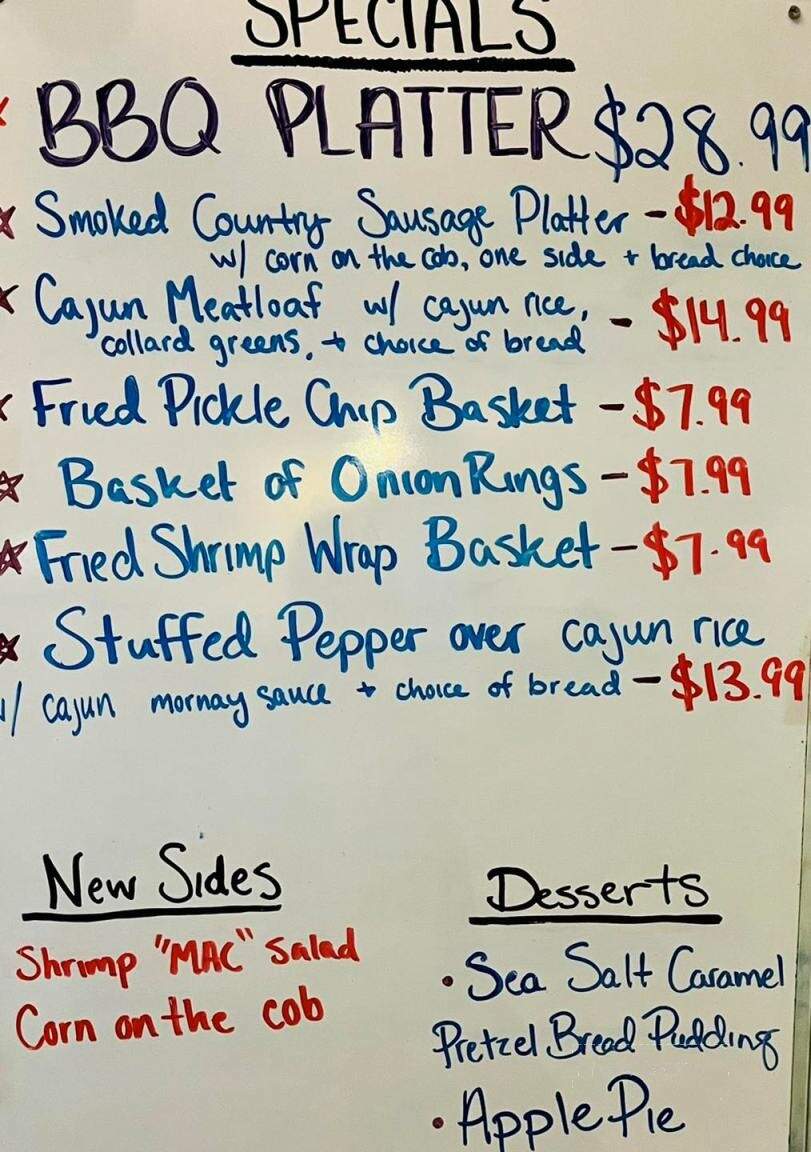 SPECIALS
BBQ PLATTER $28.99
Smoked Country Sausage Platter - $12.99
w/ corn on the cob, one side + bread choice
Cajun Meatloaf w/ cajun rice,
collard greens, + choice of bread - $14.99
Fried Pickle Chip Basket - $7.99
Basket of Onion Rings - $7.99
Fried Shrimp Wrap Basket - $7.99
Stuffed Pepper over cajun rice
w/ cajun mornay sauce + choice of bread - $13.99
New Sides
Shrimp "MAC" Salad
Corn on the cob
Desserts
• Sea Salt Caramel
Pretzel Bread Pudding
• Apple Pie